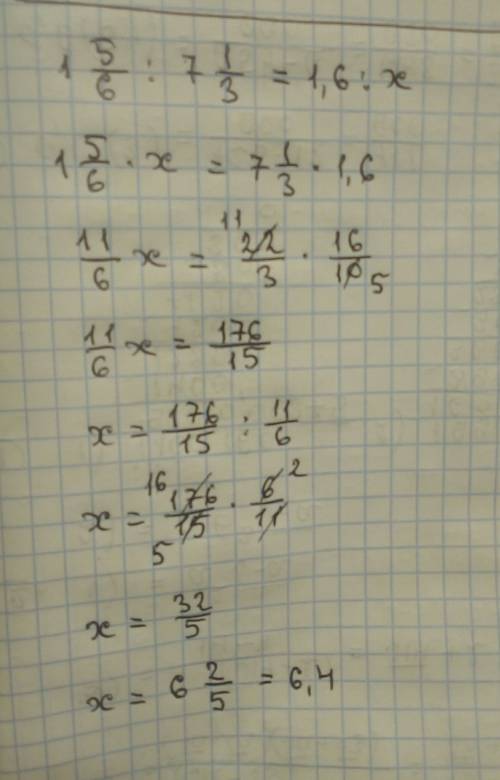 1 5/6 : 7 1/3 = 1,6 : x
1 5/6 · x = 7 1/3 · 1,6
11/6 x = 11 22/3 · 16/10 5
11/6 x = 176/15
x = 176/15 : 11/6
x = 16 176/15 5 · 6/11 2
x = 32/5
x = 6 2/5 = 6,4